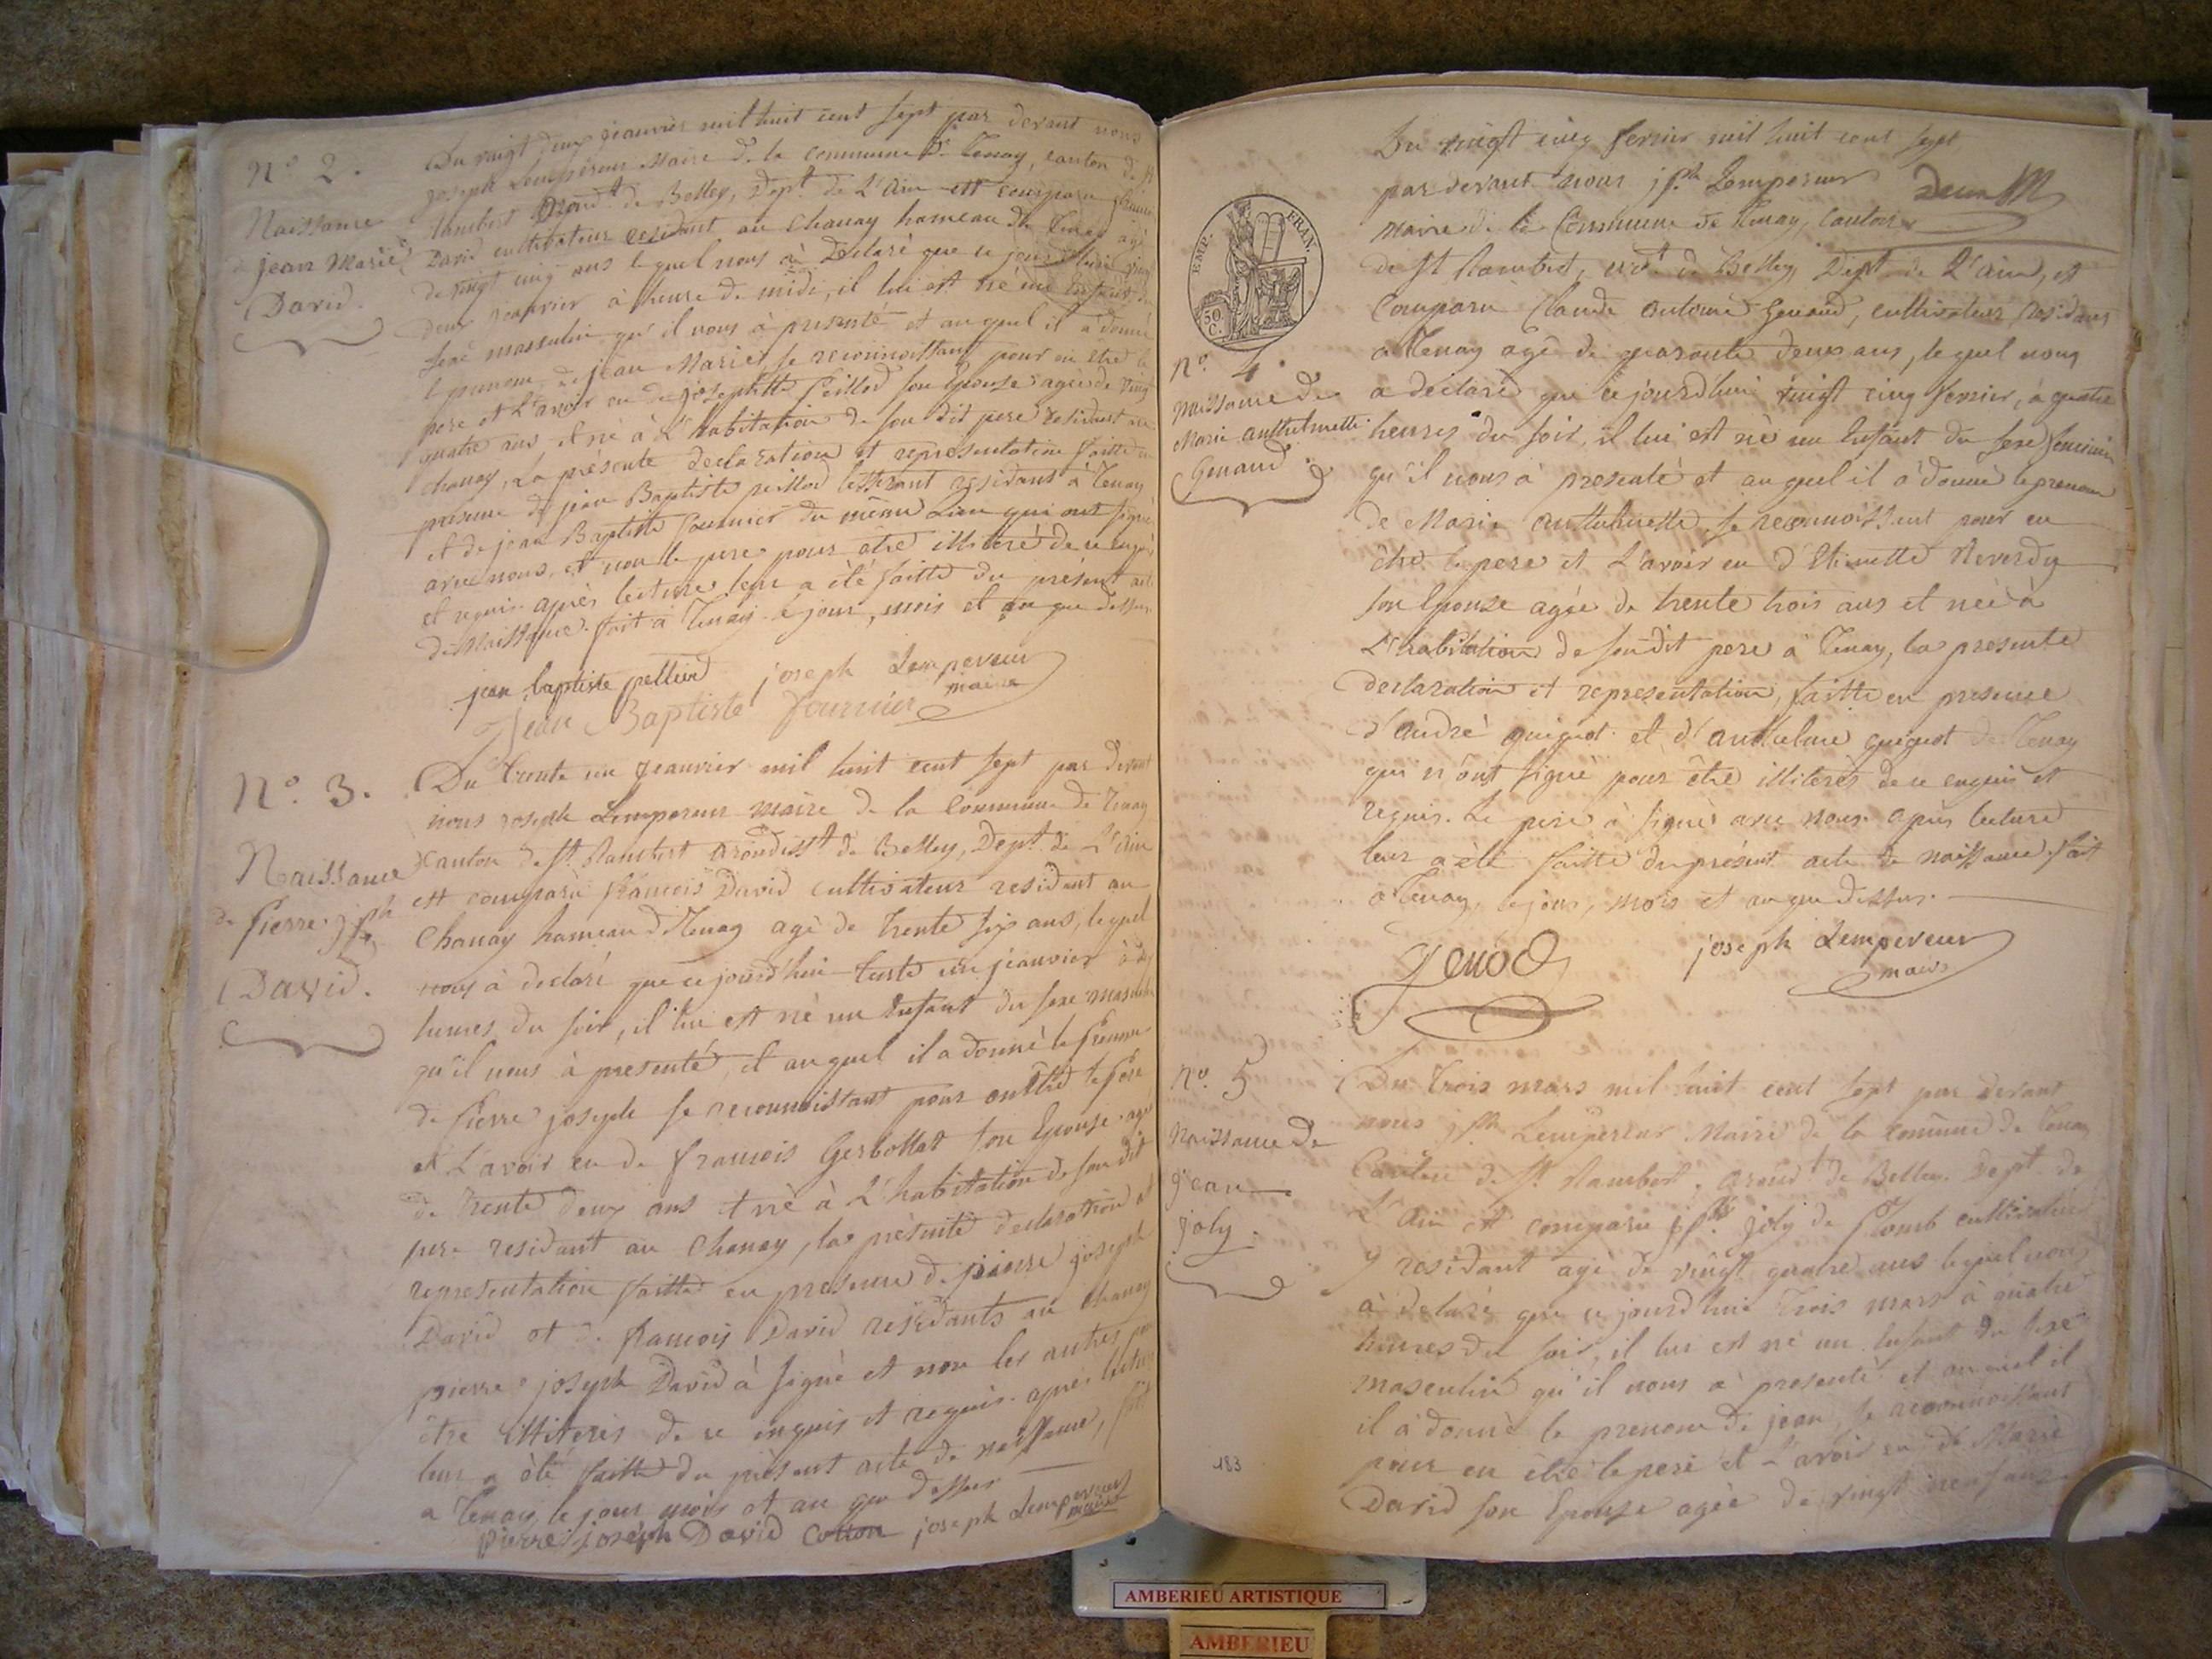 N.º 2.
Naissance
de jean Marie
David.
Du vingt deux jeanvier mil huit cent sept par devant nous
joseph Lempereur Maire de la commune de Tenay, canton de St
Rambert arond.t de Belley, Dept. de L'ain est comparu
David cultivateur residant au Chanay hameau de Tenay agé
de vingt cinq ans lequel nous à Declaré que ce jourd'hui vingt
deux jeanvier à heure de midi, il lui est né un Enfant du
sexe masculin qu'il nous à presenté et auquel il à donné
le prenom de jean Marie, se reconnoissant pour en être le
pere et L'avoir eu de josephte peillod son Epouse agée de vingt
quatre ans et né à L'habitation de son dit pere residant au
chanay, La présente declaration et representation faitte en
presence de jean Baptiste peillod residant à Tenay
et de jean Baptiste fournier du même Lieu qui ont signé
avec nous, et non le pere pour être illiteré de ce enquis
et requis. après lecture leur a été faitte du présent acte
de Naissance. fait à Tenay le jour, mois et an que dessus
jean baptiste pelliod joseph Lempereur
maire
Jean Baptiste fournier
N.º 3.
Naissance
de pierre jsph
David.
Du trente un jeanvier mil huit cent sept par devant
nous joseph Lempereur maire de la Commune de Tenay
canton de St. Rambert arondisst de Belley, Dept. de L'ain
est comparu francois David cultivateur residant au
Chanay hameau de Tenay agé de trente six ans, lequel
nous à declaré que ce jourd'hui trente un jeanvier à
heures du soir, il lui est né un Enfant du sexe masculin
qu'il nous à presenté, et auquel il a donné le prenom
de pierre joseph se reconnoissant pour en être le pere
et L'avoir eu de francois Gerbollat son Epouse agée
de trente deux ans et né à L'habitation de son dit
pere residant au Chanay, la présente declaration et
representation faitte en presence de pierre joseph
David et de francois David residants au chanay
pierre joseph David à signé et non les autres pour
être illiterés de ce enquis et requis. après lecture
leur a été faitte du présent acte de naissance, fait
a Tenay, le jour mois et an que dessus
pierre joseph David Cotton joseph Lempereur
maire
EMP. FRAN.
50 C.
N.º 4.
naissance de
Marie anthelmette
Genaud.
Du vingt cinq fevrier mil huit cent sept
par devant nous jsph Lempereur
maire de la Commune de Tenay, canton
de St Rambert, arot de Belley, Dept. de L'ain, est
Comparu Claude antoine Genaud, cultivateur residant
a Tenay agé de quaronte deux ans, lequel nous
a declaré que ce jourd'hui vingt cinq fevrier, à quatre
heures du soir, il lui est né un Enfant du sexe feminin
qu'il nous à presenté et auquel il à donné le prenom
de Marie anthelmette, se reconnoissant pour en
être le pere et L'avoir eu d'Etiennette Reverdy
son Epouse agée de trente trois ans et née à
L'habitation de son dit pere à Tenay, la presente
declaration et representation, faitte en presence
d'andré guiguet et d'anthelme guiguet de Tenay
qui n'ont signé pour être illiterés de ce enquis et
requis. Le pere à signé avec nous. après lecture
leur a été faitte du présent acte de naissance. fait
à Tenay, le jour, mois et an que dessus.
Genod joseph Lempereur
maire
N.º 5
Naissance de
jean
joly.
Du Trois mars mil huit cent sept par devant
nous jsph Lempereur Maire de la commune de Tenay
Canton de St. Rambert, arond.t de Belley. Dept. de
L'ain est comparu jsph. joly de plomb cultivateur
y residant agé de vingt quatre ans lequel nous
à declaré que ce jourd'hui trois mars à quatre
heures du soir, il lui est né un Enfant du sexe
masculin qu'il nous à presenté et auquel il
il à donné le prenom de jean, se reconnoissant
pour en être le pere et L'avoir eu de Marie
David son Epouse agée de vingt neuf ans
183
AMBERIEU ARTISTIQUE
AMBERIEU